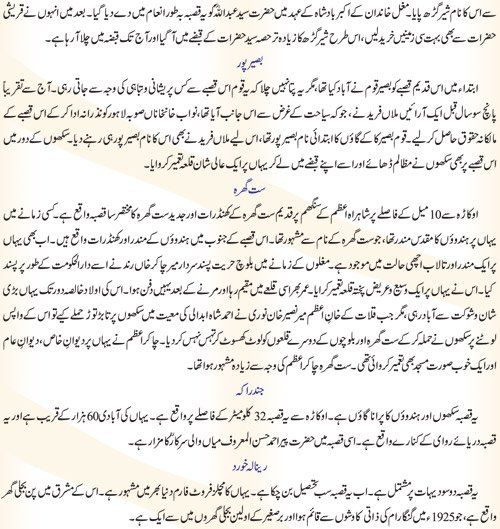 سے اس کا نام شیر گڑھ پایا۔ مغل خاندان کے اکبر بادشاہ کے عہد میں حضرت سید عبداللہ کو یہ قصبہ بہ طور انعام میں دے دیا گیا۔ بعد میں انہوں نے قریشی
حضرات سے بھی بہت سی زمینیں خرید لیں، اس طرح شیر گڑھ کا زیادہ تر حصہ سید حضرات کے قبضے میں آ گیا اور آج تک قبضہ میں چلا آ رہا ہے۔
بصیر پور
ابتداء میں اس قدیم قصبے کو بصیر قوم نے آباد کیا تھا، مگر یہ پتا نہیں چلا کہ یہ قوم اس قصبے سے کس پریشانی و تباہی کی وجہ سے جاتی رہی۔ آج سے تقریباً
پانچ سو سال قبل ایک آرائیں ملاں فرید نے، جو کہ سیاحت کے غرض سے اس جانب آیا تھا، نواب خانخاناں صوبہ لاہور کو نذرانہ ادا کر کے اس قصبے کے
مالکانہ حقوق حاصل کر لیے۔ قوم بصیر کا کے گاؤں کا ابتدائی نام بصیر پور تھا، اس لیے ملاں فرید نے بھی اس کا نام بصیر پور ہی رہنے دیا۔ سکھوں کے دور میں
اس قصبے پر بھی سکھوں نے مظالم ڈھائے اور اسے اپنے قبضے میں لے کر یہاں پر ایک عالی شان قلعہ تعمیر کروایا۔
ست گھرہ
اوکاڑہ سے 10 میل کے فاصلے پر شاہراہ اعظم کے سنگھم پر قدیم ست گھرہ کے کھنڈرات اور جدید ست گھرہ کا مختصر سا قصبہ واقع ہے۔ کسی زمانے میں
یہاں پر ہندوؤں کا مقدس مندر تھا، جو ست گھرہ کے نام سے مشہور تھا۔ اس قصبے کے جنوب میں ہندوؤں کے مندر اور کھنڈرات واقع ہیں۔ اب بھی یہاں
پر ایک مندر اور تالاب اچھی حالت میں موجود ہے۔ مغلوں کے زمانے میں بلوچ حریت پسند سردار میر چاکر خاں رند نے اسے دارالحکومت کے طور پر پسند
کیا۔ اس نے یہاں پر ایک وسیع و عریض پختہ قلعہ تعمیر کرایا۔ عمر بھر اسی قلعے میں مقیم رہا اور مرنے کے بعد یہیں دفن ہوا۔ اس کی اولاد خالصہ دور تک یہاں بڑی
شان و شوکت سے آباد رہی، مگر جب قلات کے خانِ اعظم میر نصیر خان نوری نے احمد شاہ ابدالی کی معیت میں سکھوں پر تابڑ توڑ حملے کیے تو اس کے واپس
لوٹنے پر سکھوں نے حملہ کر کے ست گھرہ اور بلوچوں کے دوسرے قلعوں کو لوٹ کھسوٹ کر تہس نہس کر دیا۔ چاکر اعظم نے یہاں پر دیوانِ خاص، دیوانِ عام
اور ایک خوب صورت مسجد بھی تعمیر کروائی تھی۔ ست گھرہ چاکر اعظم کی وجہ سے زیادہ مشہور ہوا تھا۔
جندرا کہ
یہ قصبہ سکھوں اور ہندوؤں کا پرانا گاؤں ہے۔ اوکاڑہ سے یہ قصبہ 32 کلومیٹر کے فاصلے پر واقع ہے۔ یہاں کی آبادی 60 ہزار کے قریب ہے اور یہ
قصبہ دریائے راوی کے کنارے واقع ہے۔ اسی قصبہ میں حضرت پیر احمد حسن المعروف میاں والی سرکار کا مزار ہے۔
رینالہ خورد
یہ قصبہ دو سو دیہات پر مشتمل ہے۔ اب یہ قصبہ سب تحصیل بن چکا ہے۔ یہاں کا مچلز فروٹ فارم دنیا بھر میں مشہور ہے۔ اس کے مشرق میں پن بجلی گھر
واقع ہے، جو 1925ء میں گنگا رام کی ذاتی کاوشوں سے قائم ہوا اور برصغیر کے اولین بجلی گھروں میں سے ایک ہے۔